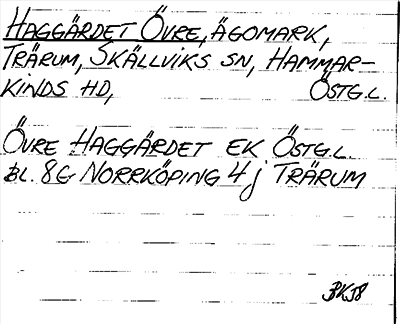 HAGGÄRDET ÖVRE, ÄGOMARK,
TRÄRUM, SKÄLLVIKS SN, HAMMAR-
KINDS HD, ÖSTG.L.
ÖVRE HAGGÄRDET EK ÖSTG.L.
BL. 8G NORRKÖPING 4j TRÄRUM